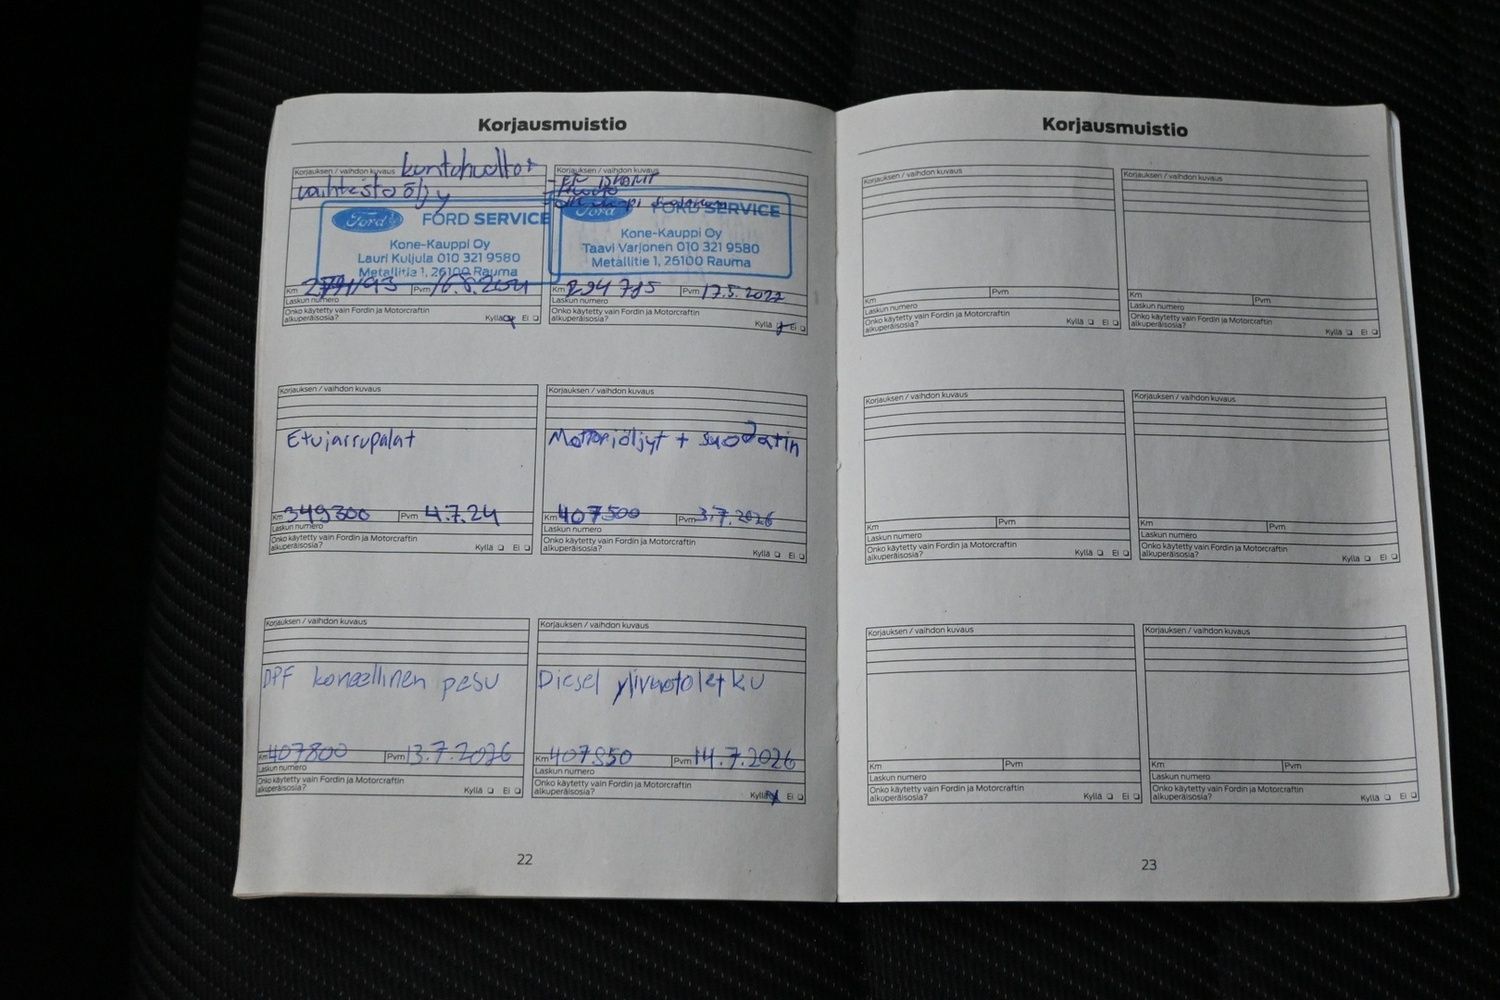 Korjausmuistio
Korjauksen / vaihdon kuvaus kuntohuolto+
vaihteistoöljy
Ford FORD SERVICE
Kone-Kauppi Oy
Lauri Kuljula 010 321 9580
Metallitie 1, 26100 Rauma
Km Pvm 16.8.2021
Laskun numero
Onko käytetty vain Fordin ja Motorcraftin
alkuperäisosia? Kyllä Ei
Korjauksen / vaihdon kuvaus
- ETU ISKARIT
Ford FORD SERVICE
Kone-Kauppi Oy
Taavi Varjonen 010 321 9580
Metallitie 1, 26100 Rauma
Km 294785 Pvm 17.5.2022
Laskun numero
Onko käytetty vain Fordin ja Motorcraftin
alkuperäisosia? Kyllä Ei
Korjauksen / vaihdon kuvaus
Etujarrupalat
Km 349300 Pvm 4.7.24
Laskun numero
Onko käytetty vain Fordin ja Motorcraftin
alkuperäisosia? Kyllä Ei
Korjauksen / vaihdon kuvaus
Mottoriöljyt + suodatin
Km 407500 Pvm 3.7.2026
Laskun numero
Onko käytetty vain Fordin ja Motorcraftin
alkuperäisosia? Kyllä Ei
Korjauksen / vaihdon kuvaus
DPF koneellinen pesu
Km 407800 Pvm 13.7.2026
Laskun numero
Onko käytetty vain Fordin ja Motorcraftin
alkuperäisosia? Kyllä Ei
Korjauksen / vaihdon kuvaus
Diesel ylivuotoletku
Km 407850 Pvm 14.7.2026
Laskun numero
Onko käytetty vain Fordin ja Motorcraftin
alkuperäisosia? Kyllä Ei
22
Korjausmuistio
Korjauksen / vaihdon kuvaus
Km Pvm
Laskun numero
Onko käytetty vain Fordin ja Motorcraftin
alkuperäisosia? Kyllä Ei
Korjauksen / vaihdon kuvaus
Km Pvm
Laskun numero
Onko käytetty vain Fordin ja Motorcraftin
alkuperäisosia? Kyllä Ei
Korjauksen / vaihdon kuvaus
Km Pvm
Laskun numero
Onko käytetty vain Fordin ja Motorcraftin
alkuperäisosia? Kyllä Ei
Korjauksen / vaihdon kuvaus
Km Pvm
Laskun numero
Onko käytetty vain Fordin ja Motorcraftin
alkuperäisosia? Kyllä Ei
Korjauksen / vaihdon kuvaus
Km Pvm
Laskun numero
Onko käytetty vain Fordin ja Motorcraftin
alkuperäisosia? Kyllä Ei
Korjauksen / vaihdon kuvaus
Km Pvm
Laskun numero
Onko käytetty vain Fordin ja Motorcraftin
alkuperäisosia? Kyllä Ei
23